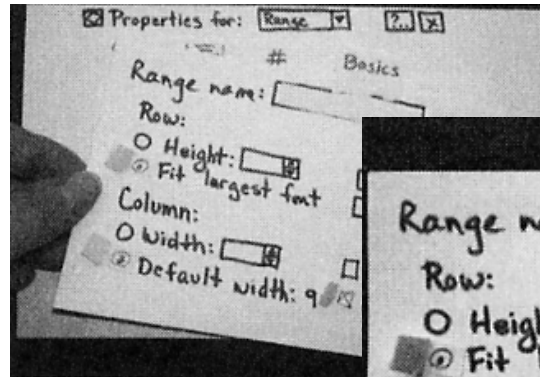 Properties for: Range ?.. X
# Basics
Range name:
Row:
Height:
Fit largest font
Column:
Width:
Default width: 9
Range
Row:
Fit